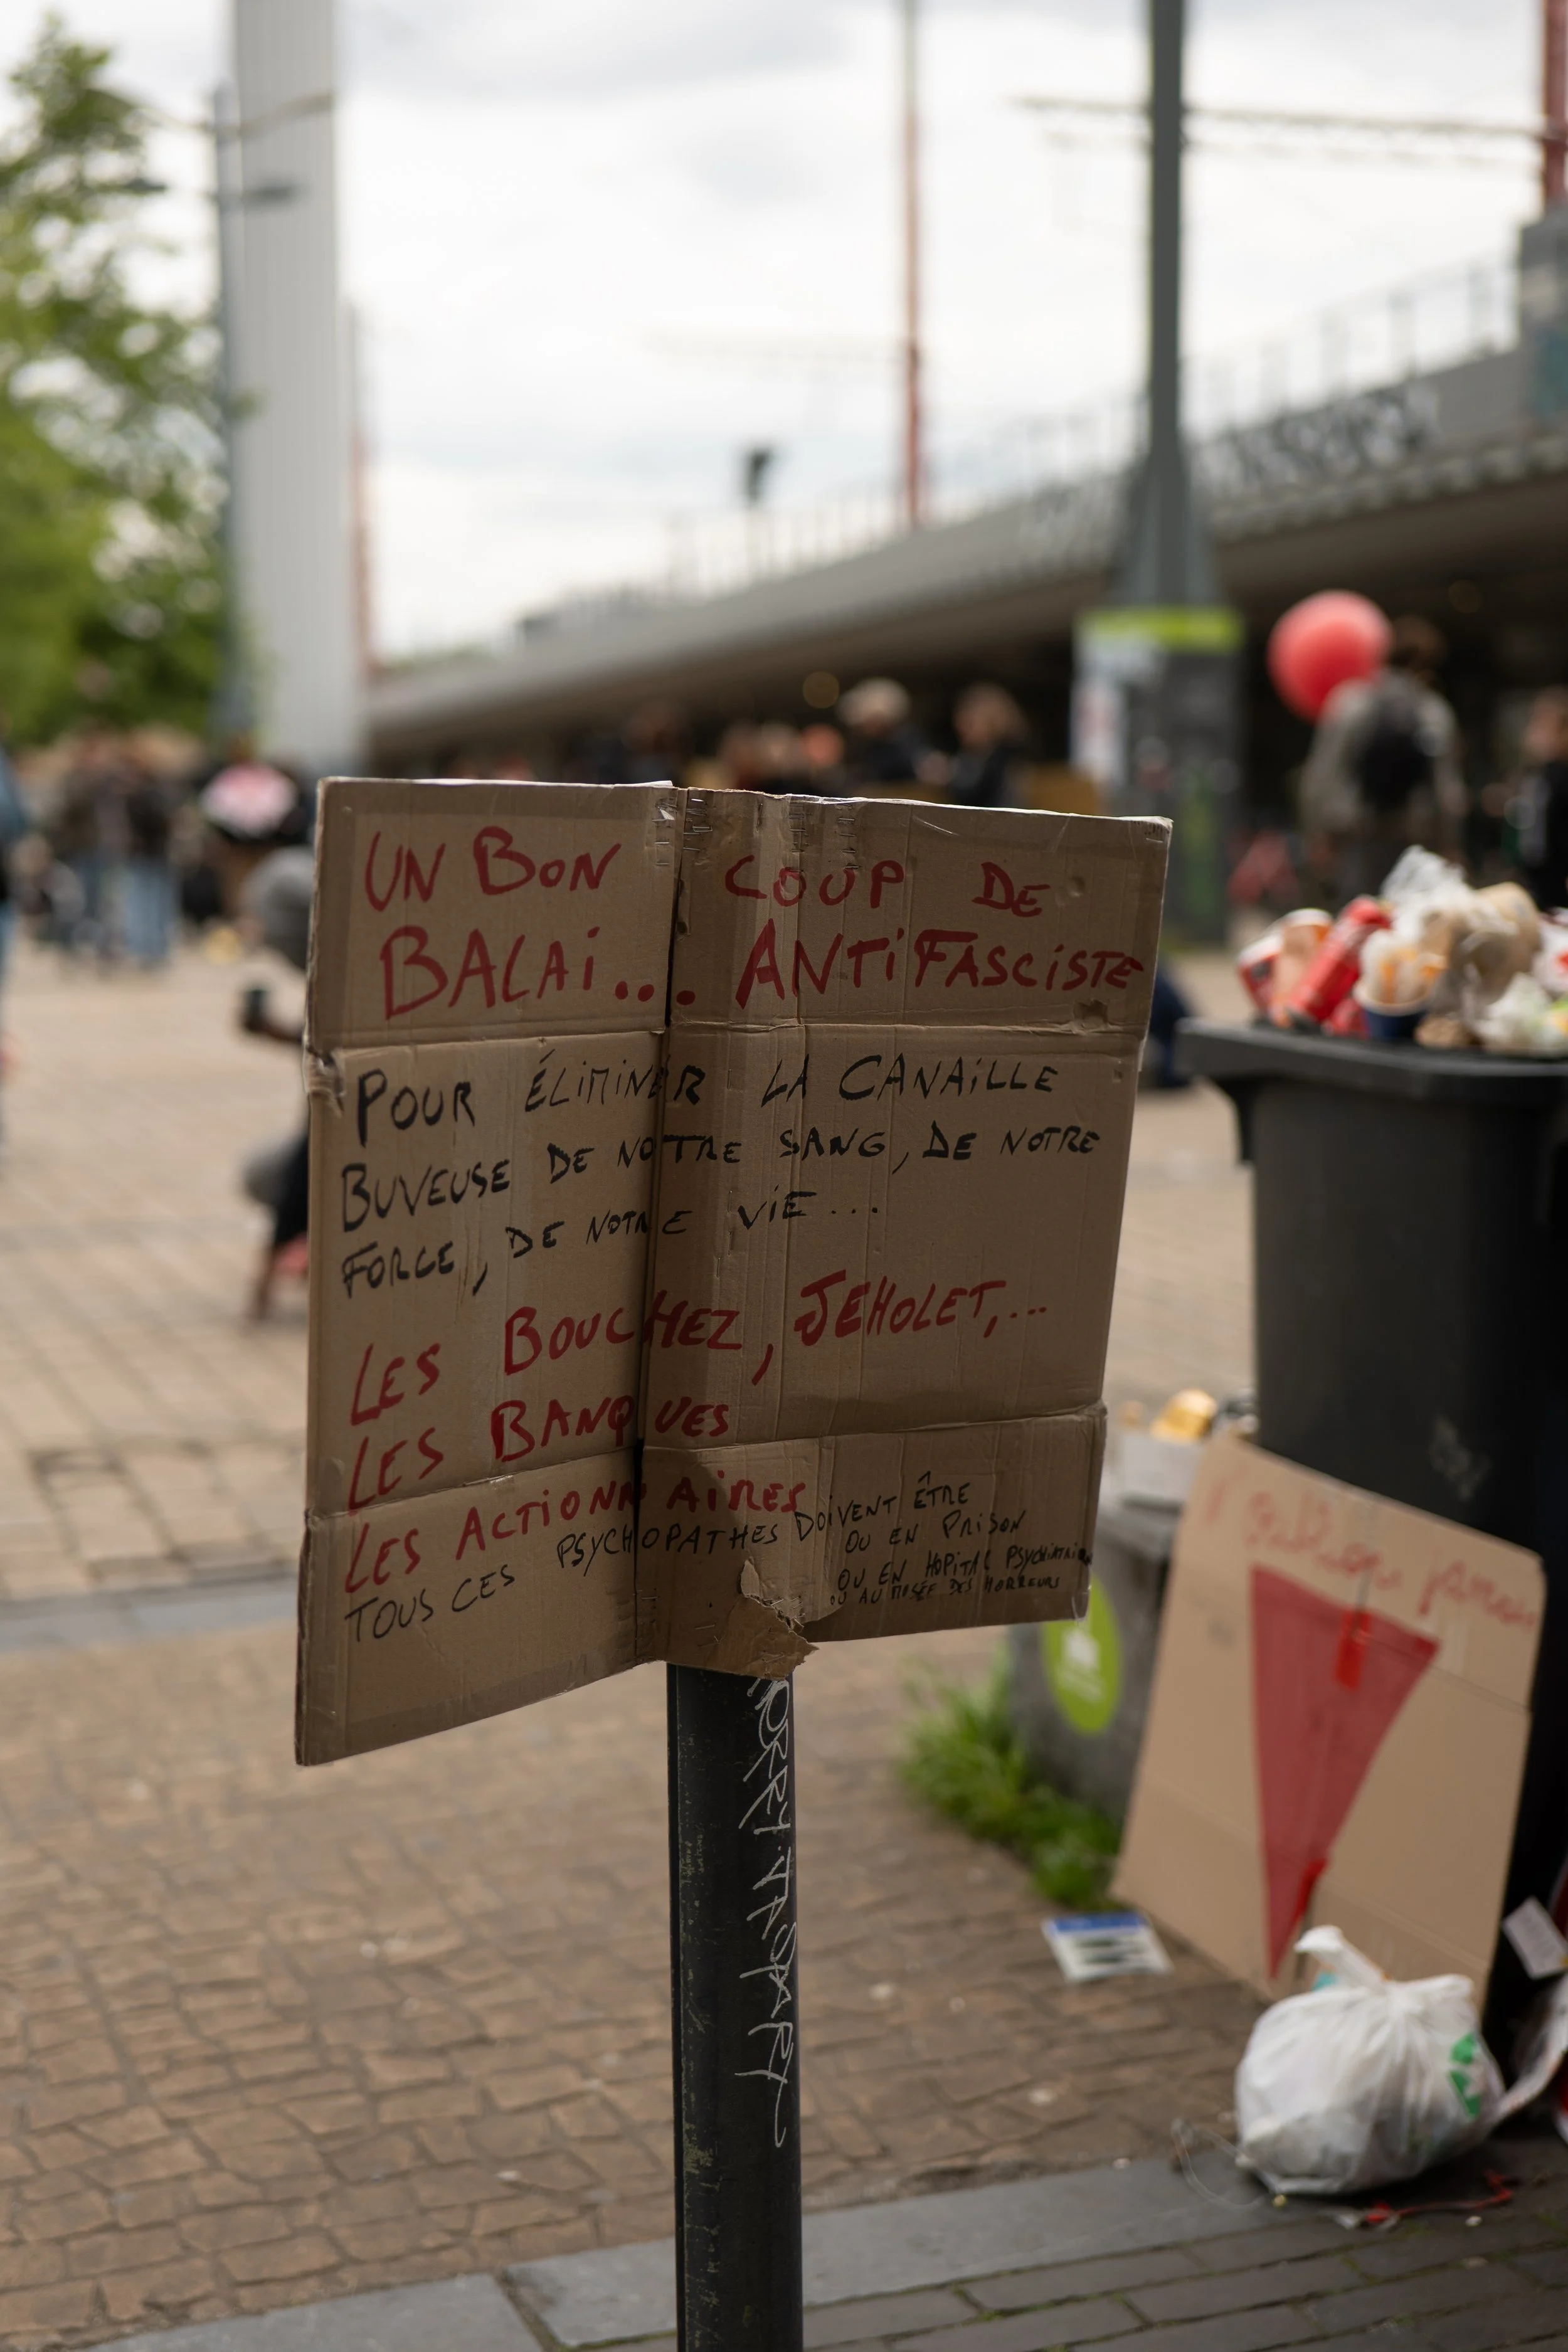 UN BON COUP DE
BALAI... ANTIFASCISTE
POUR ÉLIMINER LA CANAILLE
BUVEUSE DE NOTRE SANG, DE NOTRE
FORCE, DE NOTRE VIE...
LES BOUCHEZ, JEHOLET,...
LES BANQUES
LES ACTIONNAIRES
TOUS CES PSYCHOPATHES DOIVENT ÊTRE
OU EN PRISON
OU EN HOPITAL PSYCHIATRIQUE
OU AU MUSÉE DES HORREURS